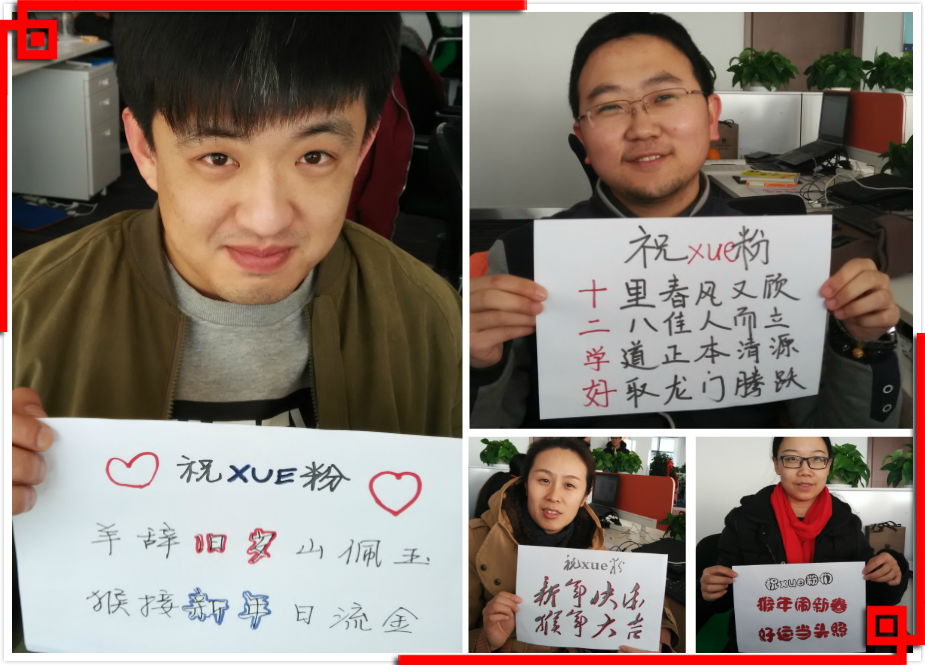 祝XUE粉
羊辞旧岁山佩玉
猴接新年日流金
祝xue粉
十里春风又欣
二八佳人而立
学道正本清源
好取龙门腾跃
祝xue粉
新年快乐
猴年大吉
祝xue粉们
猴年闹新春
好运当头照